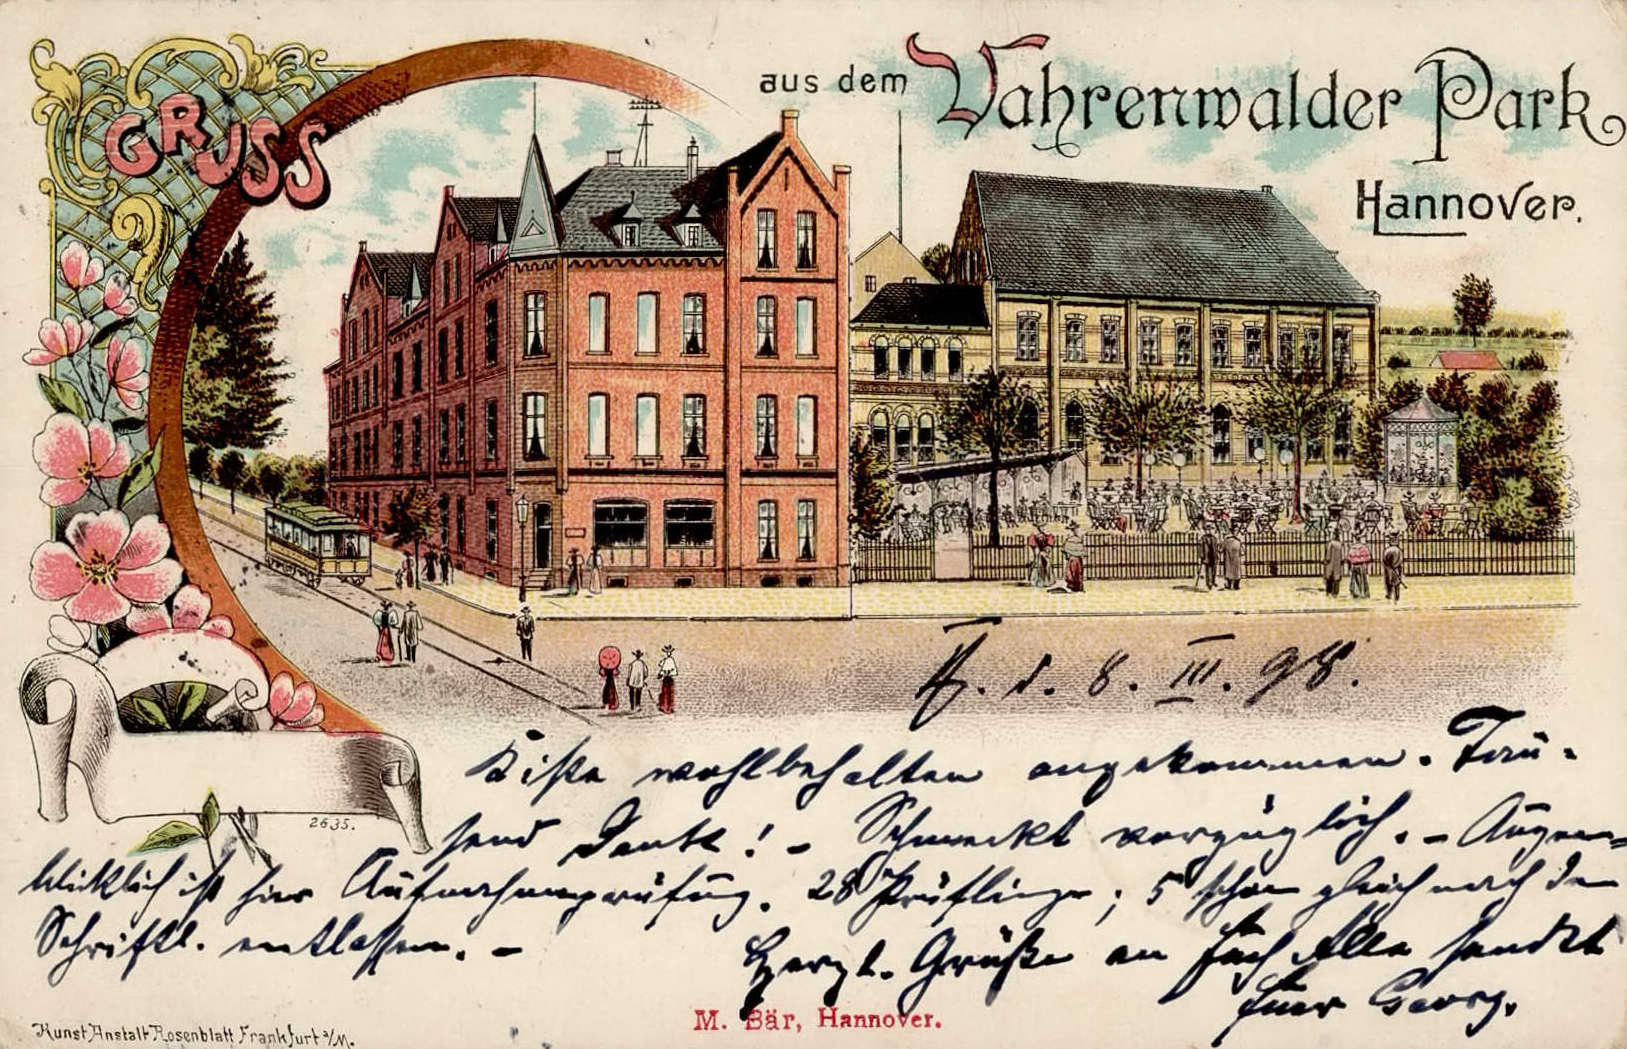 GRUSS
aus dem Vahrenwalder Park
Hannover.
H. d. 8. III. 98.
Kiste wohlbehalten angekommen. Tau-
send Dank! – Schmeckt vorzüglich. – Augen-
blicklich ist hier Aufnahmeprüfung. 28 Prüflinge; 5 schon gleich nach dem
Schriftl. entlassen. –
Herzl. Grüße an Euch Alle sendet
Euer Georg.
2635.
M. Bär, Hannover.
Kunst Anstalt Rosenblatt Frankfurt a/M.